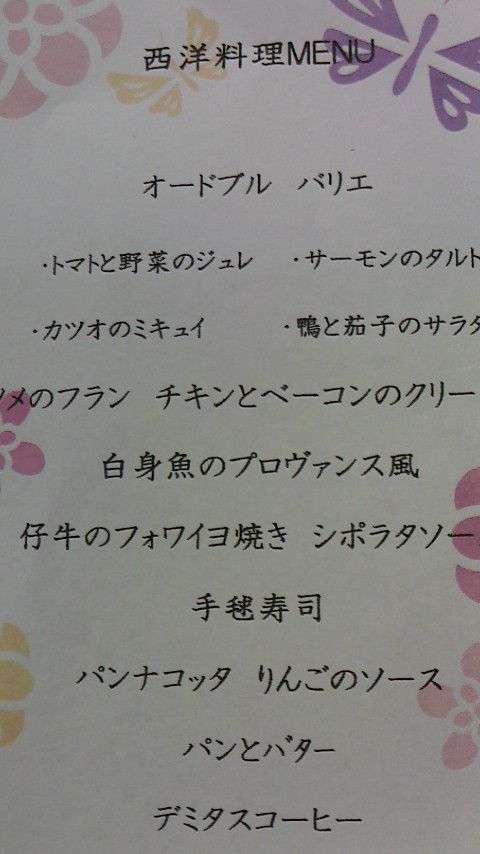 西洋料理MENU
オードブル　バリエ
・トマトと野菜のジュレ　・サーモンのタルト
・カツオのミキュイ　・鴨と茄子のサラダ
メのフラン　チキンとベーコンのクリー
白身魚のプロヴァンス風
仔牛のフォワイヨ焼き　シポラタソー
手毬寿司
パンナコッタ　りんごのソース
パンとバター
デミタスコーヒー